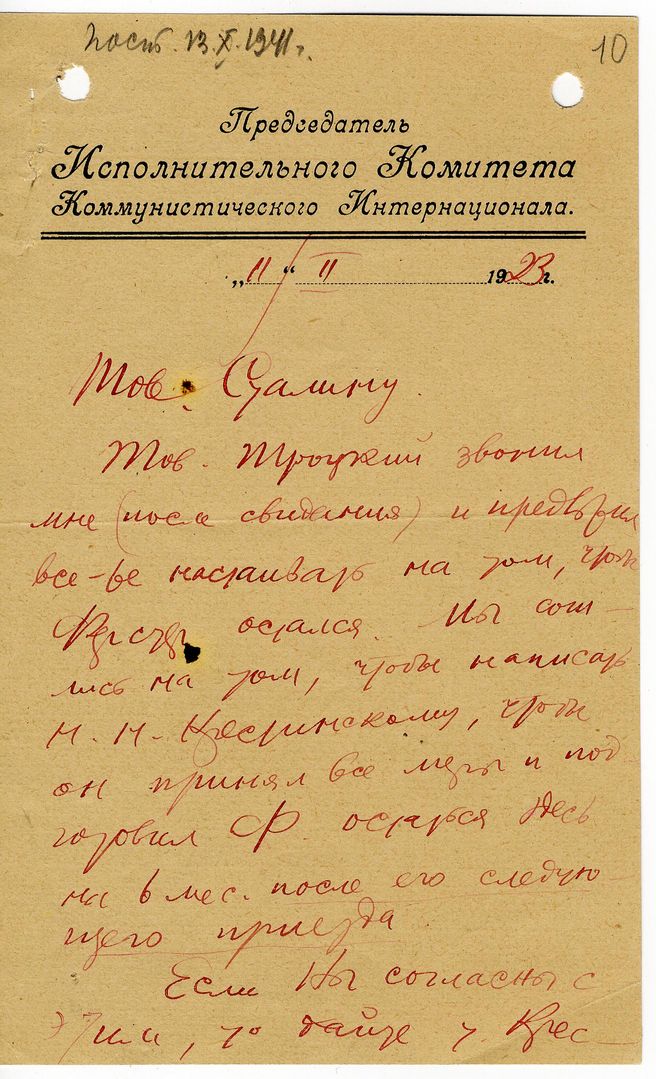 Пост. 13.X.1941г.
10
Председатель
Исполнительного Комитета
Коммунистического Интернационала.
„11“ II 1923г.
Тов. Сталину.
Тов. Троцкий звонил
мне (после свидания) и
все-же настаивать на том, чтобы
остался. Мы сош-
лись на том, чтобы написать
Н. Н. Крестинскому, чтобы
он принял все меры и под-
готовил Ф. остаться здесь
на 6 мес. после его следую-
щего приезда
Если Вы согласны с
этим, то дайте т. Крес-